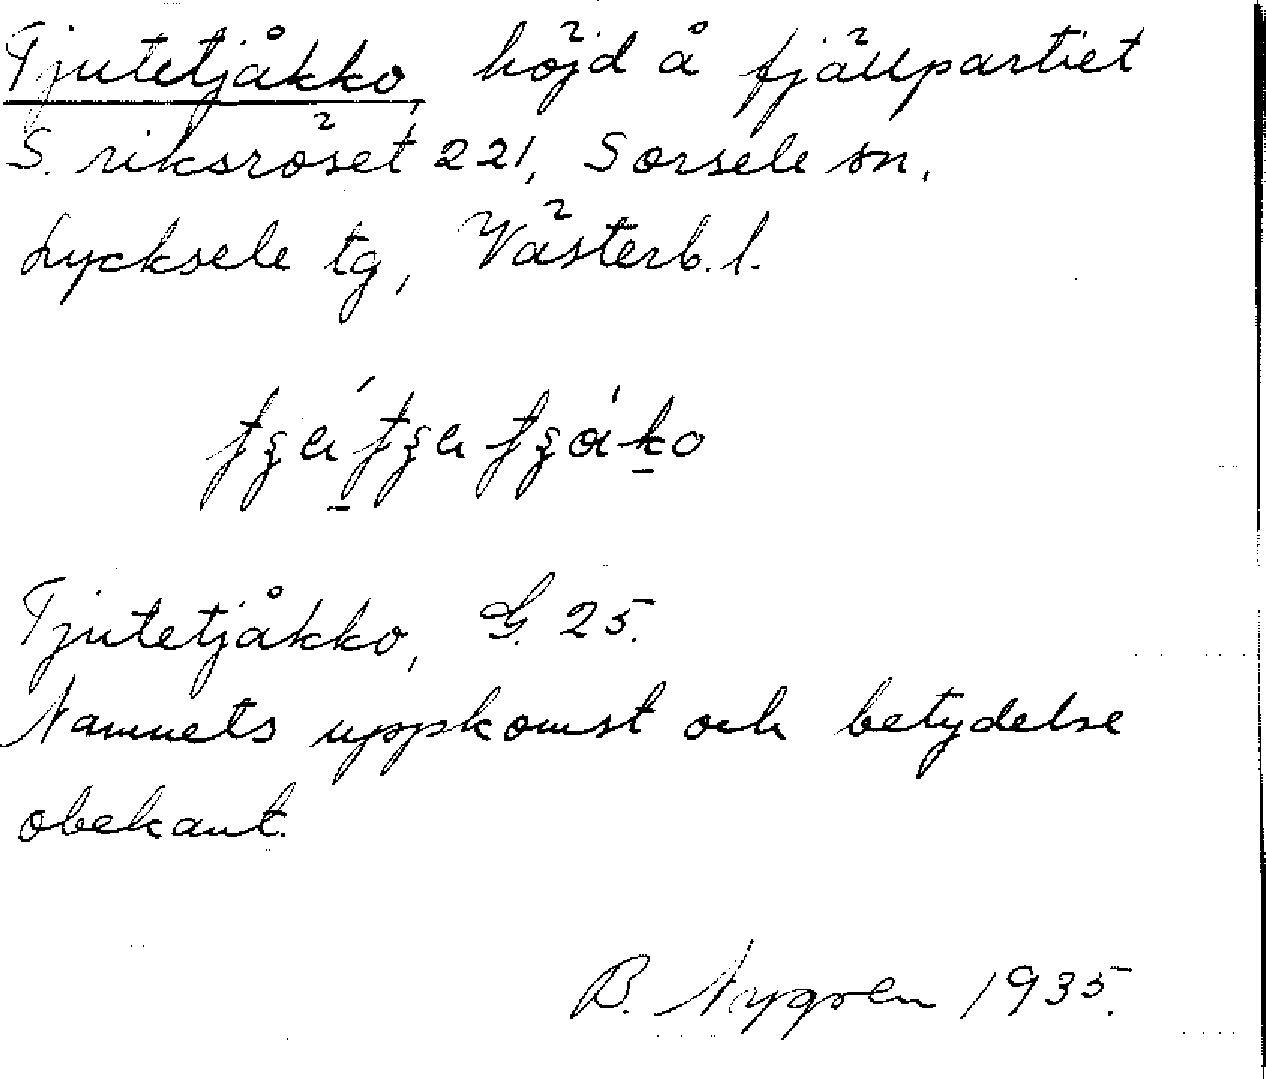 Tjutetjåkko, höjd å fjällpartiet
S. riksröset 221, Sorsele sn,
Lycksele tg, Västerb. l.
Tjutetjåkko, G. 25.
Namnets uppkomst och betydelse
obekant.
B. Nygren 1935.